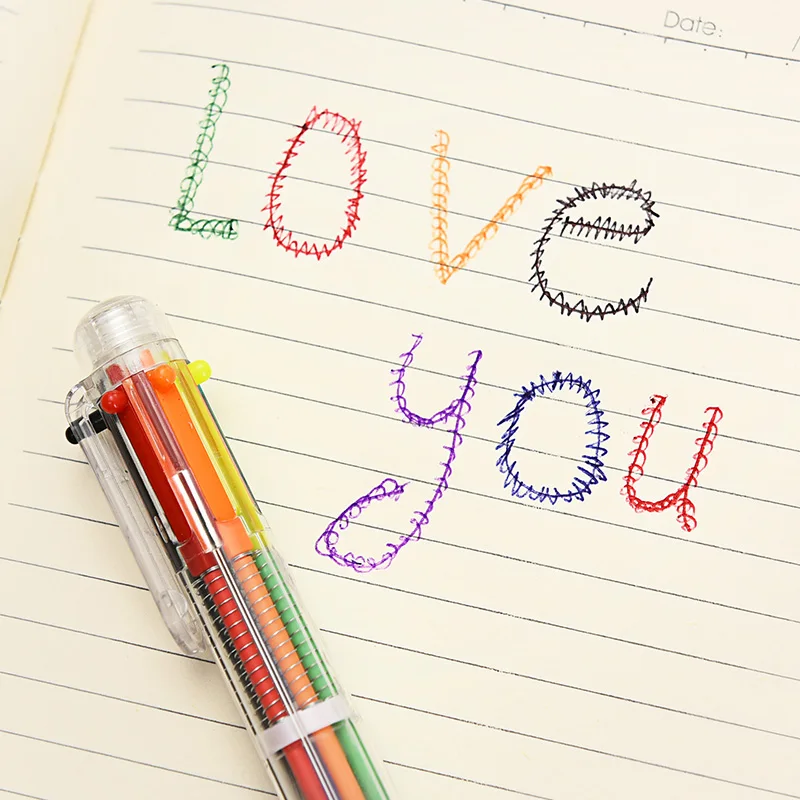 Date:
Love
you